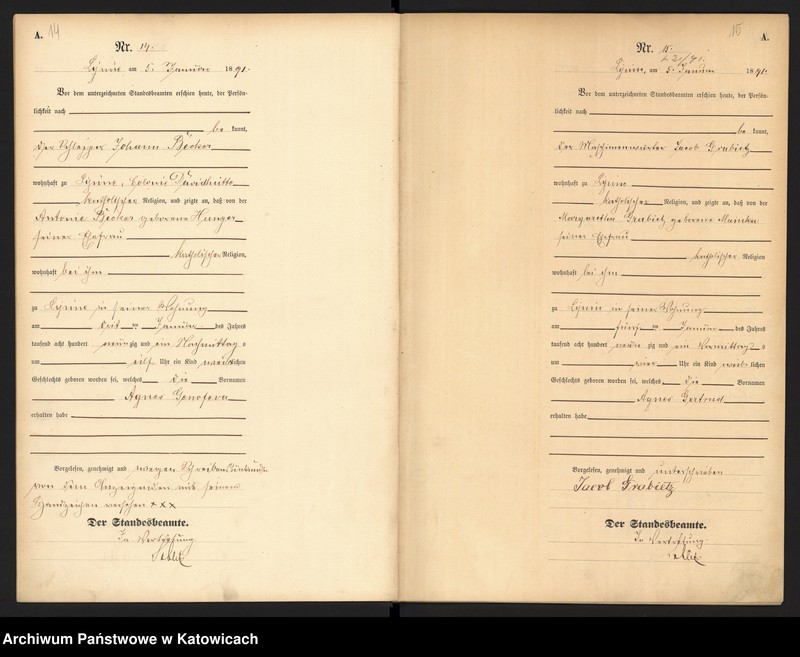 A. 14
Nr. 14.
Lipine am 5. Januar 1891.
Vor dem unterzeichneten Standesbeamten erschien heute, der Persön-
lichkeit nach
be kannt,
der Schlepper Johann
wohnhaft zu Lipine, Colonie Davidhütte
katholischer Religion, und zeigte an, daß von der
Antonie geborene
seiner Ehefrau
katholischer Religion,
wohnhaft bei ihm
zu Lipine in seiner Wohnung
am drei ten Januar des Jahres
tausend acht hundert neunzig und ein Nachmittag s
um elf Uhr ein Kind weiblichen
Geschlechts geboren worden sei, welches die Vornamen
Agnes Genofeva
erhalten habe
Vorgelesen, genehmigt und wegen Schreibensunkunde
von dem Anzeigenden mit seinem
Handzeichen versehen +++
Der Standesbeamte.
In Vertretung
15 A.
Nr. 15.
Lipine, am 5. Januar 1891.
Vor dem unterzeichneten Standesbeamten erschien heute, der Persön-
lichkeit nach
be kannt,
der Maschinenwärter Jacob Grabietz
wohnhaft zu Lipine
katholischer Religion, und zeigte an, daß von der
Margarethe Grabietz geborene Mainka
seiner Ehefrau
katholischer Religion
wohnhaft bei ihm
zu Lipine in seiner Wohnung
am fünf ten Januar des Jahres
tausend acht hundert neun zig und ein Vormittag s
um Uhr ein Kind weib lichen
Geschlechts geboren worden sei, welches die Vornamen
Agnes Gertrud
erhalten habe
Vorgelesen, genehmigt und unterschrieben
Jacob Grabietz
Der Standesbeamte.
In Vertretung
Archiwum Państwowe w Katowicach